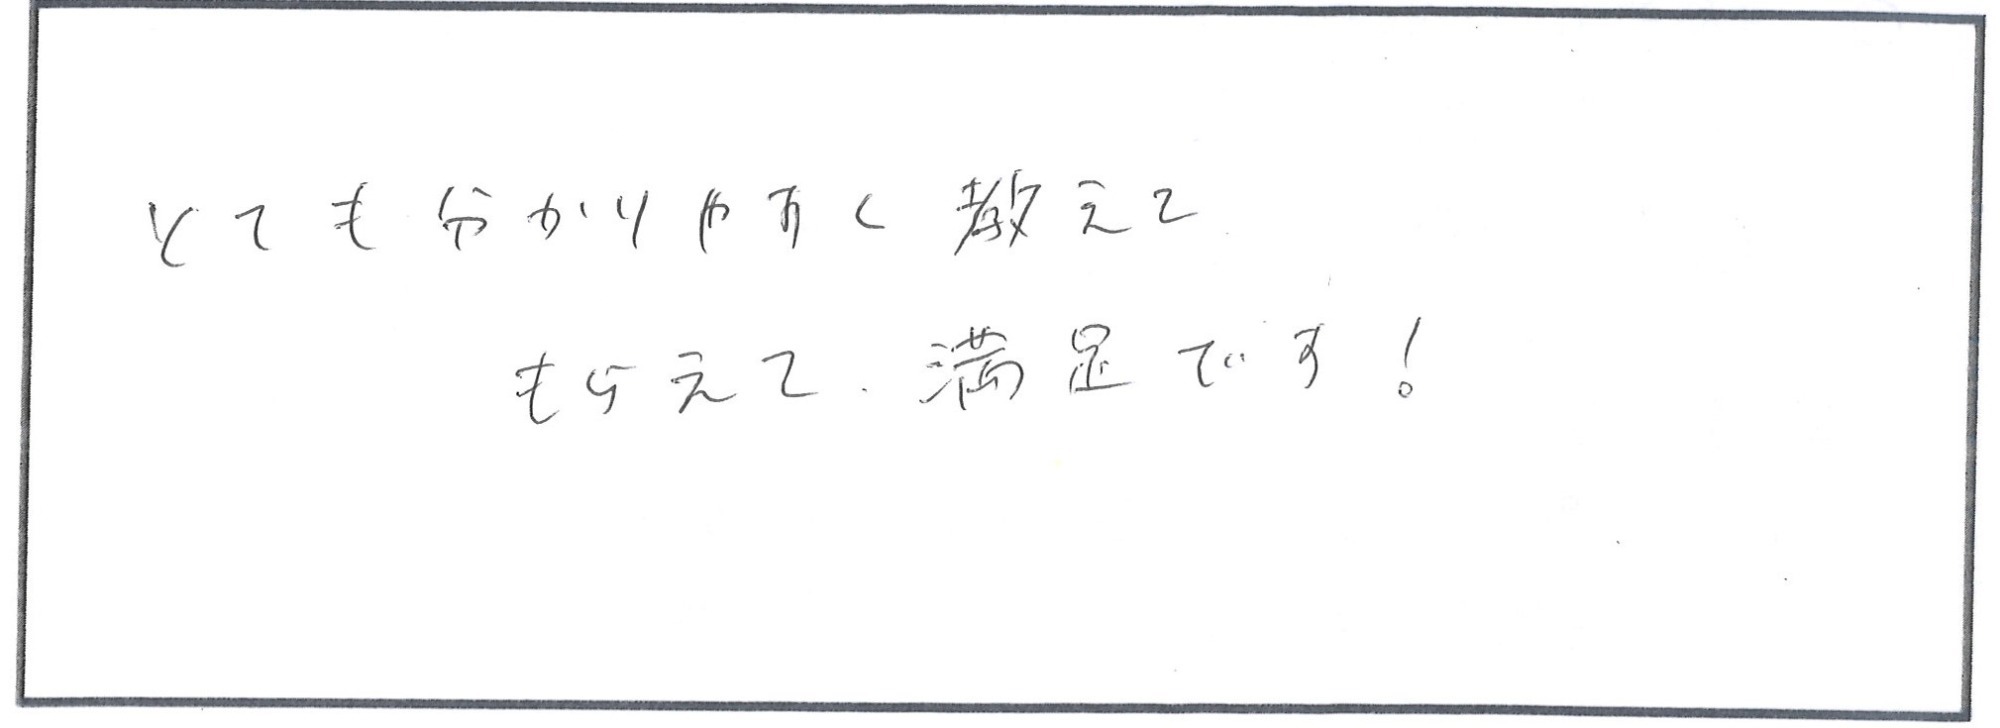 とても分かりやすく教えて
もらえて、満足です!